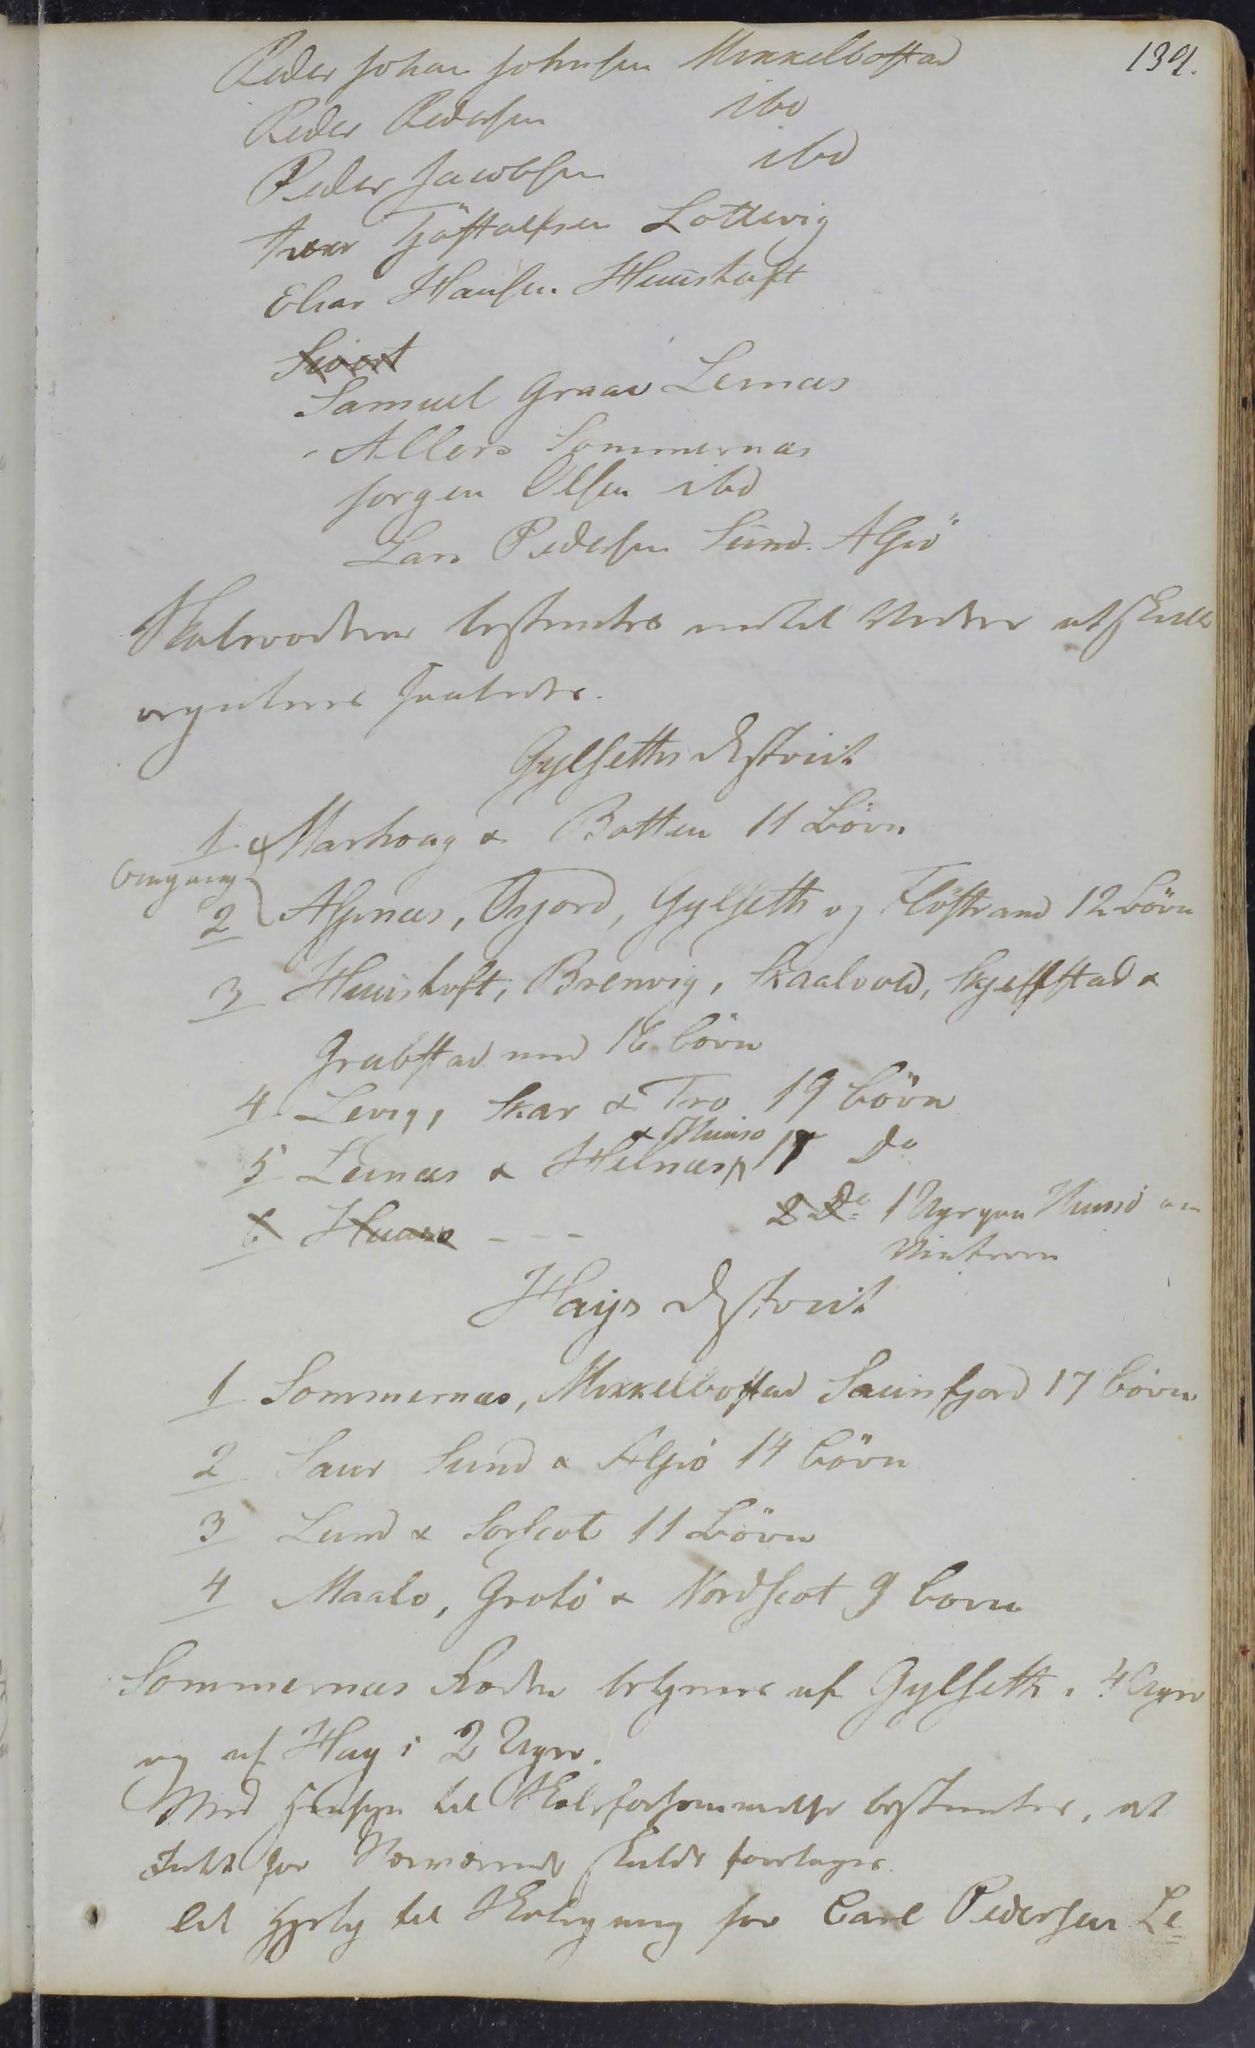 139.
Peder Johan Johnsen Mikkelbostad
Peder Pedersen ibd
Peder Jacobsen ibd
Iver Tjöstolfsen Lottevig
Elias Hansen Huustoft
Sivert
Samuel Graae Lernæs
Allers Sommernæs
Jörgen Olsen ibd
Lars Pedersen Sund. Alsiö
Skolerodene bestemtes indtil videre at skulle
reguleres saaledes.
Gylseths District
1 Marhoug & Botten 11 Börn
Omgang
2 Aspnæs, Oxjord, Gylseth og Flöstrand 12 börn
3 Huustoft, Brenvig, Skaalvold, Skjelstad &
Grubstad med 16 börn
4 Levig, Skar & Tro 19 börn
5 Leinæs & Helnæs & Huusö 17 Do
6 Huusö - - - 2 Do 1 Uge paa Huusö om
Vinteren
Haigs District
1 Sommernæs, Mikkelbostad Saursfjord 17 börn
2 Saur Sund & Alsiö 14 börn
3 Lund & Sorscot 11 Börn
4 Maalö, Grotö & Nordscot 9 börn
Sommernæs Roden betjenes af Gylseth i 4 Uger
og af Hag i 2 Uger.
Med Hensyn til Skoleforsömmelse bestemtes, at
Intet for Nærværende skulde foretages.
Til Hjelp til Skolegang for Carl Pedersen Le=